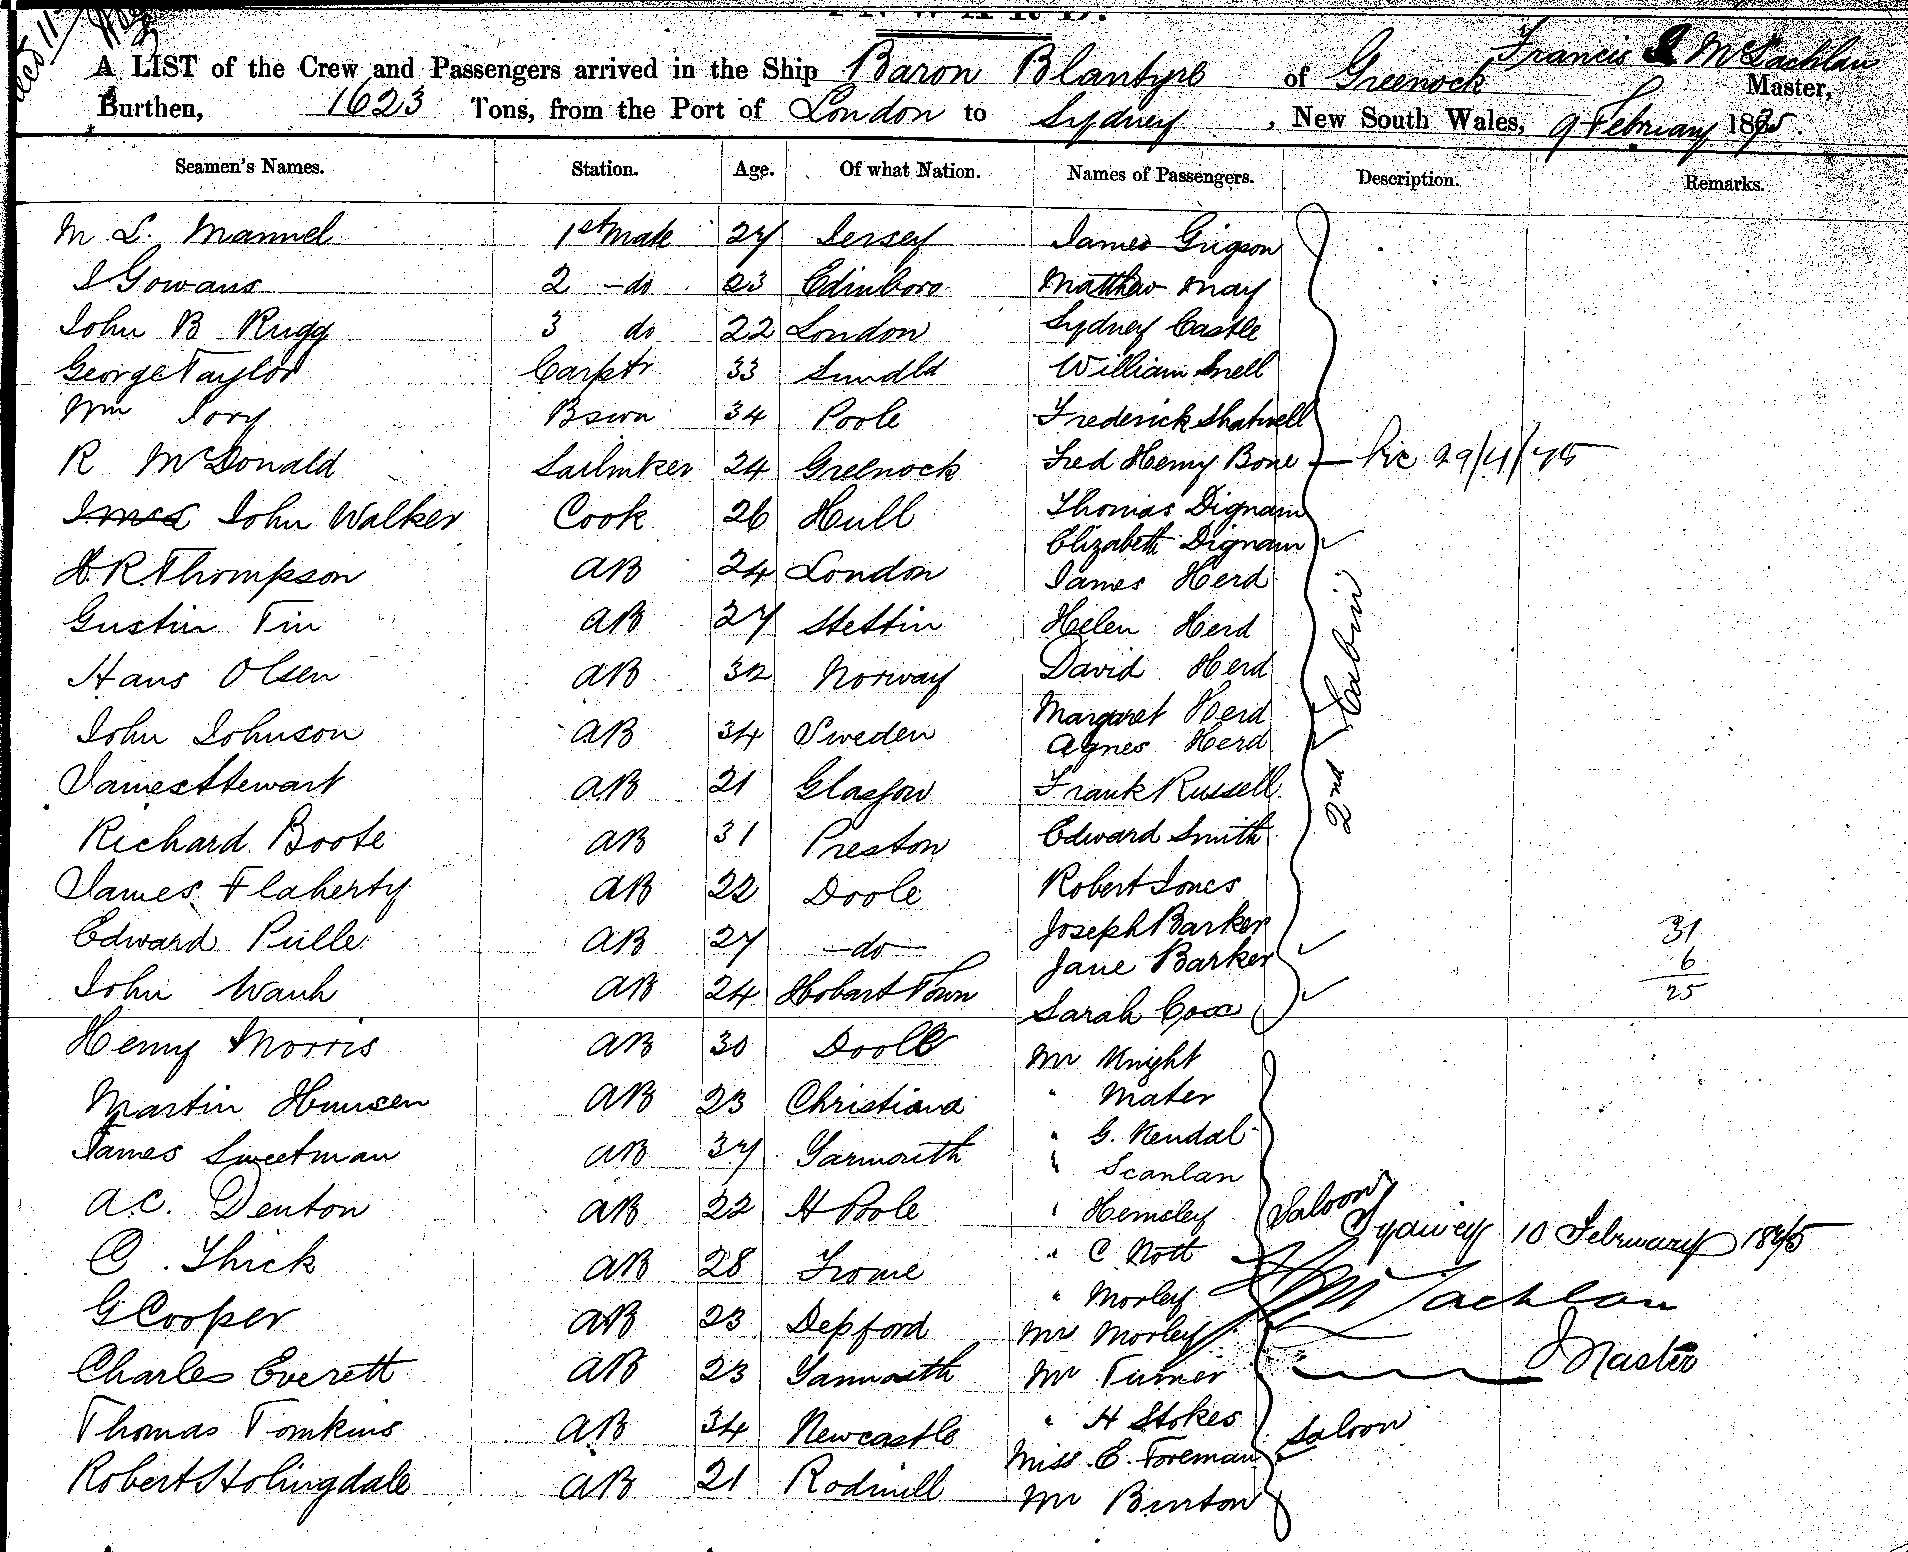 INWARD.
A LIST of the Crew and Passengers arrived in the Ship Baron Blantyre of Greenock Francis McLachlan Master,
Burthen, 1623 Tons, from the Port of London to Sydney, New South Wales, 9 February 1875.
Seamen's Names. Station. Age. Of what Nation. Names of Passengers. Description. Remarks.
M L. Mannel 1st Mate 27 Jersey James Grigson
J Gowans 2 do 23 Edinboro Matthew May
John B Rugg 3 do 22 London Sydney Castle
George Taylor Carptr 33 Sundld William Snell
Wm Jory Bswn 34 Poole Frederick Shatwell
R McDonald Sailmker 24 Greenock Fred Henry Bone 29/4/75
John Walker Cook 26 Hull Thomas Dignam
Elizabeth Dignam
H R Thompson AB 24 London James Herd
Gustin Tin AB 27 Stettin Helen Herd
Hans Olsen AB 32 Norway David Herd
Margaret Herd
John Johnson AB 34 Sweden Agnes Herd
James Stewart AB 21 Glasgow Frank Russell 2nd Cabin
Richard Boote AB 31 Preston Edward Smith
James Flaherty AB 22 Doole Robert Jones
Edward Pulle AB 27 do Joseph Barker 31
Jane Barker 6
John Wauh AB 24 Hobart Town Sarah Cox 25
Henry Morris AB 30 Doole Mr Knight
Martin Hansen AB 23 Christiana " Mater
James Sweetman AB 37 Yarmouth " G. Kendal
" Scanlan
A.C. Denton AB 22 H Poole " Hemsley Saloon
Sydney 10 February 1875
C. Thick AB 28 Frome " C Nott
" Morley McLachlan
G Cooper AB 23 Depford Mr Morley
Master
Charles Everett AB 23 Yarmouth Mr Turner
Thomas Tomkins AB 34 Newcastle " H Stokes Saloon
Miss E. Foreman
Robert Holingdale AB 21 Rodmill Mr Burton